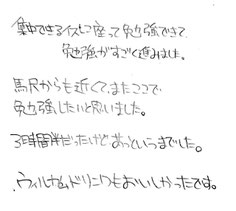 集中できるイスに座って勉強できて、
勉強がすごく進みました。
馬尺からも近くて、またここで
勉強したいと思いました。
3時間半だったけど、あっというまでした。
ウェルカムドリンクもおいしかったです。